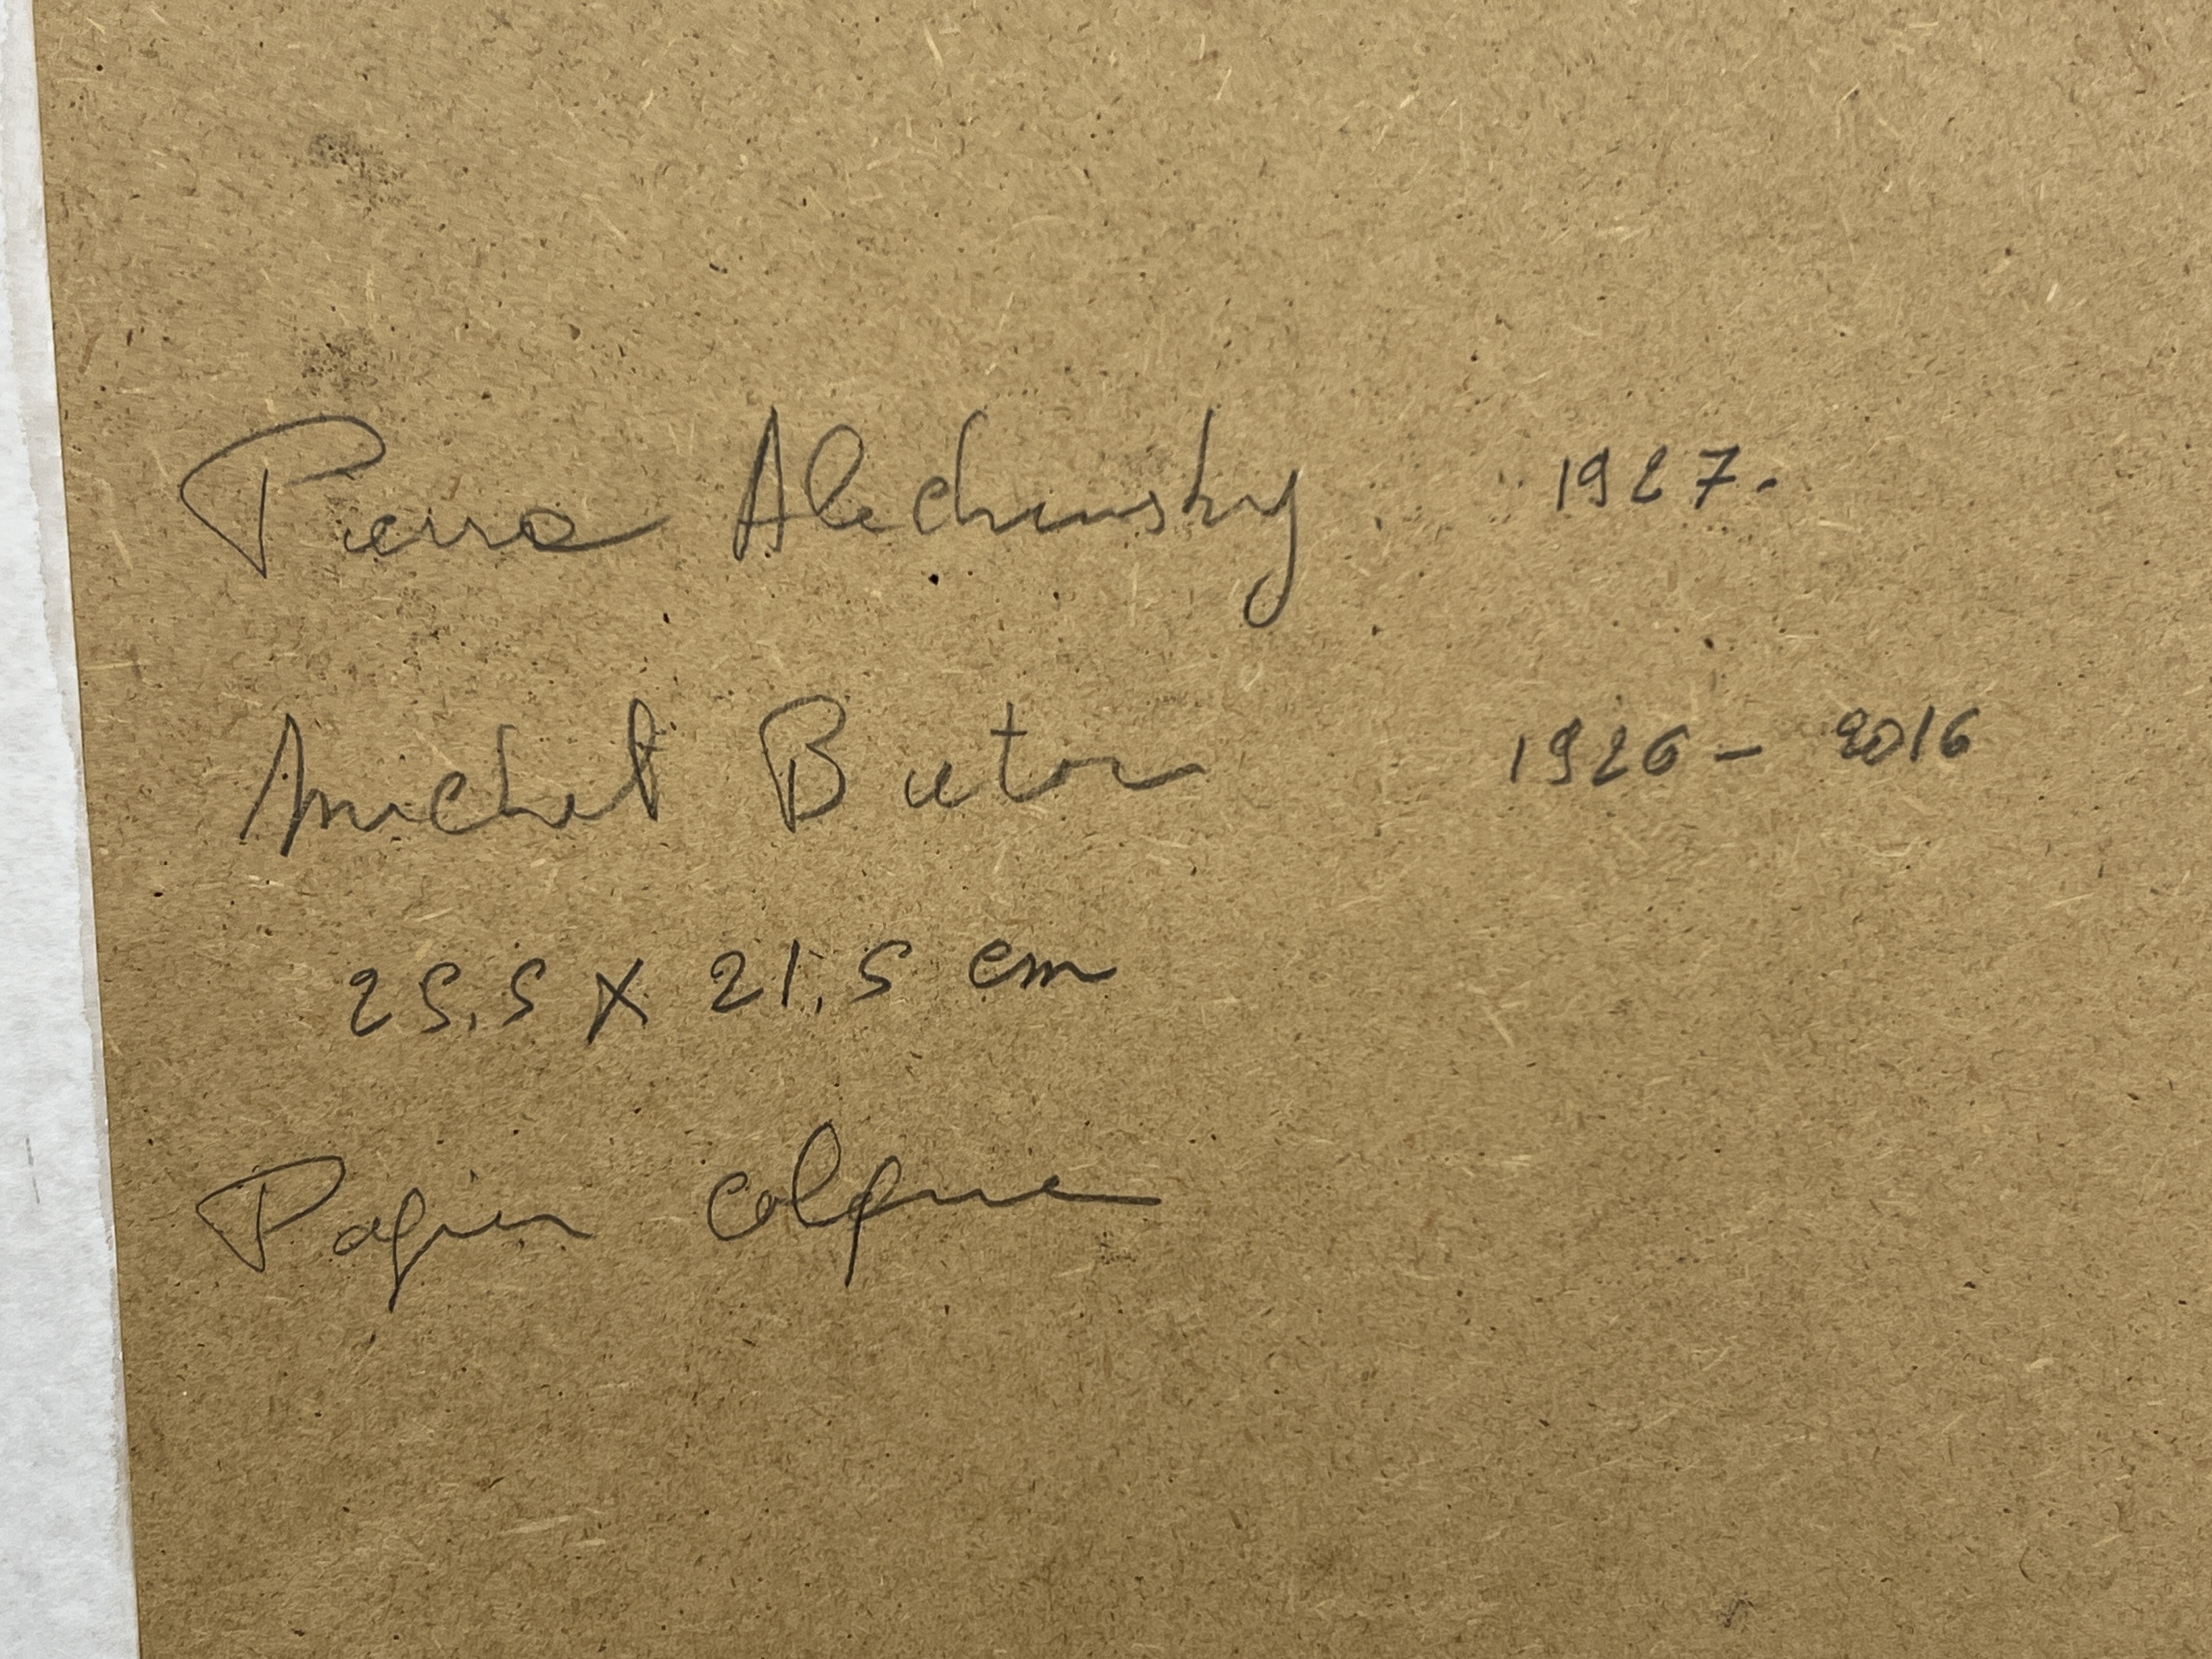 Pierre Alechinsky. 1927.
Michel Butor 1926 - 2016
25,5 X 21,5 cm
Papier calque